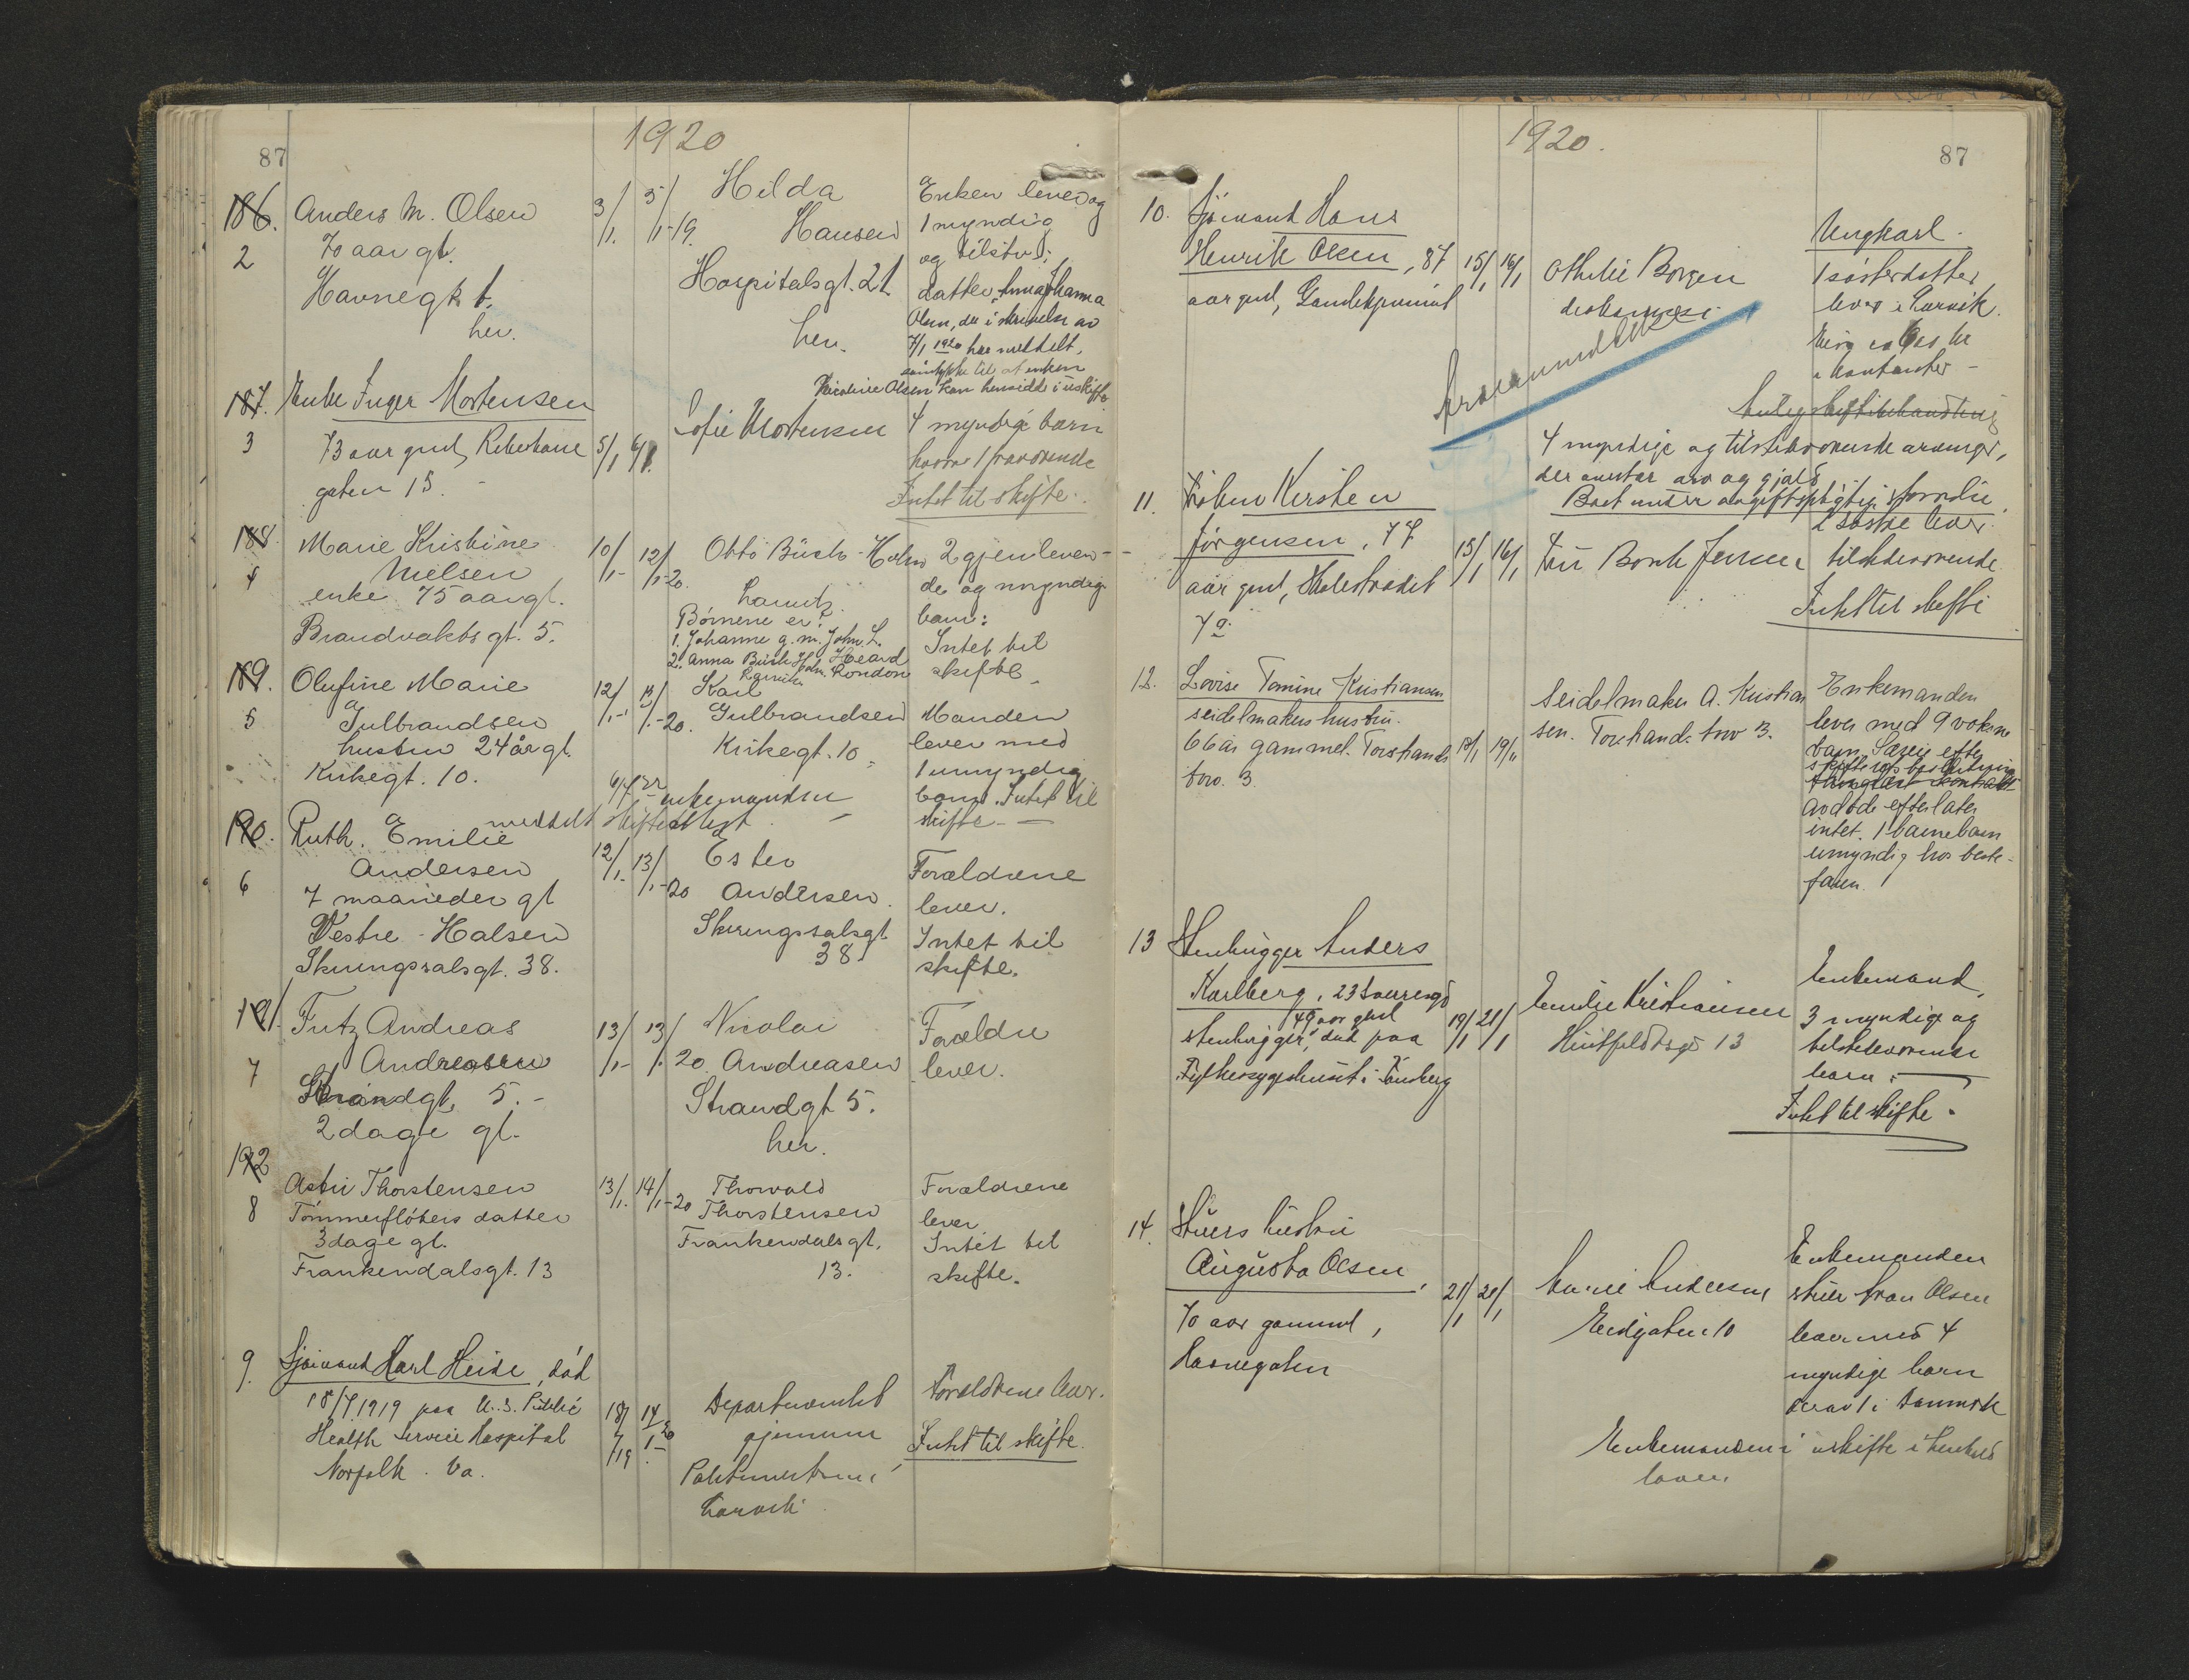 87
1920
186.
2
Anders M. Olsen
70 aar gl.
Havnegt
her.
3/1. 5/1-19.
Hilda
Hansen
Hospitalsgt. 21
her.
Enken lever og
1 myndig
og tilstd:
datter, Anna Johanna
Olsen, der i skrivelse av
7/1 1920 har meddelt,
samtykke til at enken
Nicoline Olsen kan hensidde i uskifte
187.
3
Enke Inger Mortensen
73 aar gml, Reberbane
gaten 15.
5/1 6/1.
Sofie Mortensen
4 myndige barn
hvorav 1 fraværende
Intet til skifte.
188.
4
Marie Kristine
Nielsen
enke 75 aar gl.
Brandvaktsgt. 5.
10/1- 12/1-20.
Otto Busch-Holm
Larvik.
Børnene er:
1. Johanne g. m. John L.
Heard
2. Anna Busch Holm. London
Larvik.
2 gjenleven-
de og myndige
barn:
Intet til
skifte.
189.
5
Olufine Marie
Gulbrandsen
hustru 24 år gl.
Kirkegt. 10.
12/1- 13/1-20.
Karl
Gulbrandsen
Kirkegt. 10.
Manden
lever med
1 umyndig
barn. Intet til
skifte
6/7 22 enkemanden
meddelt skifteattest
190.
6
Ruth. Emilie
Andersen
7 maaneder gl
Vestre-Halsen
Skiringssalsgt. 38.
12/1- 13/1-20
Ester
Andersen.
Skiringssalsgt.
38.
Forældrene
lever.
Intet til
skifte.
191.
7
Fritz Andreas
Andreasen
Strandgt. 5.-
2 dage gl.
13/1- 13/1. 20.
Nicolai
Andreasen
Strandgt 5.
her.
Forældre
lever.
192
8
Astri Thorstensen
Tømmerfløters datter
3 dage gl.
Frankendalsgt. 13
13/1. 14/1-20
Thorvald
Thorstensen
Frankendalsgt.
13.
Forældrene
lever
Intet til
skifte.
9.
Sjømand Karl Heide, død
18/7 1919 paa U.S. Public
Health Service Hospital
Norfolk. Va.
18/7/19 14/1-20
Departementet
gjennem
Politimesteren i
Larvik.
Forældrene lever.
Intet til skifte.
1920.
87
10.
Sjømand Hans
Henrik Olsen, 87
aar gml, Gamlehjemmet
15/1 16/1
Othilie Borgen
diakonisse
Ungkarl.
1 søsterdatter
lever i Larvik.
4 myndige og tilstedeværende arvinger,
der overtar arv og gjæld
Boet under avgiftspligtig størrelse.
11.
Frøken Kirsten
Jørgensen, 77
aar gml, Skolestrædet
7a.
15/1 16/1
Fru Bonk Jensen
2 søstre lever
tilstedeværende
Intet til skifte
12.
Lovise Tomine Kristiansen
seidelmakers hustru.
66 år gammel. Torstrands
torv. 3.
18/1 19/1
Seidelmaker A. Kristian
sen. Torstrands torv 3.
Enkemanden
lever med 9 voksne
barn. Særeie efter
avdøde efterlater
intet. 1 barnebarn
umyndig hos beste-
faren.
13
Stenhugger Anders
Karlberg,
49 aar gml
stenhugger, død paa
Fylkessygehuset i Tønsberg
19/1 21/1
Emilie Kristiansen
Huitfeldtsgt 13
Enkemand,
3 myndige og
tilstedeværende
barn.
Intet til skifte.
14.
Stuers hustru
Augusta Olsen,
70 aar gammel,
Havnegaten
21/1 21/1
Marie Andersen
Eedgaten 10
Enkemanden
stuer Olsen
lever med 4
myndige barn
derav 1 i Danmark
Enkemanden i uskifte i henhold
loven.